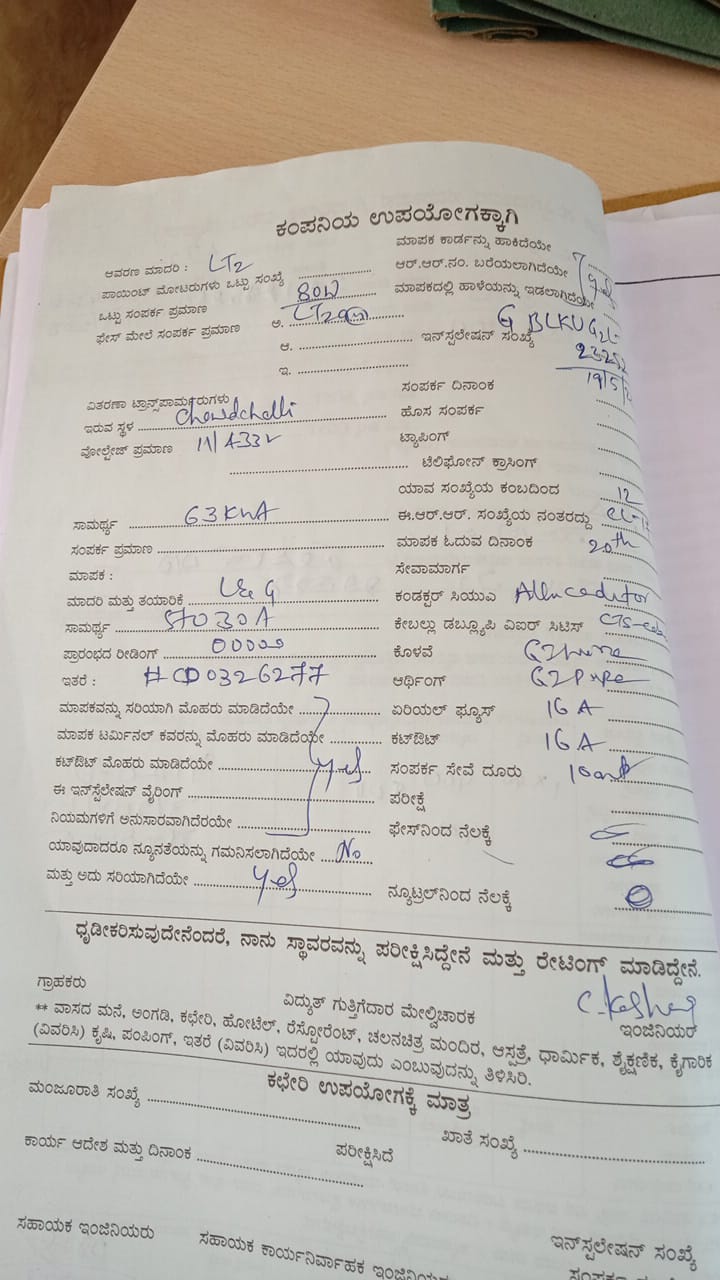 ಕಂಪನಿಯ ಉಪಯೋಗಕ್ಕಾಗಿ
ಆವರಣ ಮಾದರಿ : LT2
ಮಾಪಕ ಕಾರ್ಡನ್ನು ಹಾಕಿದೆಯೇ
ಪಾಯಿಂಟ್ ಮೋಟರುಗಳು ಒಟ್ಟು ಸಂಖ್ಯೆ
ಆರ್.ಆರ್.ನಂ. ಬರೆಯಲಾಗಿದೆಯೇ
ಒಟ್ಟು ಸಂಪರ್ಕ ಪ್ರಮಾಣ 80W
ಮಾಪಕದಲ್ಲಿ ಹಾಳೆಯನ್ನು ಇಡಲಾಗಿದೆಯೇ
ಫೇಸ್ ಮೇಲೆ ಸಂಪರ್ಕ ಪ್ರಮಾಣ ಅ.
ಆ. ಇನ್‌ಸ್ಪಲೇಷನ್ ಸಂಖ್ಯೆ
ಇ.
ಸಂಪರ್ಕ ದಿನಾಂಕ 19/5/
ವಿತರಣಾ ಟ್ರಾನ್ಸ್‌ಪಾರ್ಮರುಗಳು
ಇರುವ ಸ್ಥಳ ಹೊಸ ಸಂಪರ್ಕ
ವೋಲ್ಟೇಜ್ ಪ್ರಮಾಣ 11/433V ಟ್ಯಾಪಿಂಗ್
ಟೆಲಿಫೋನ್ ಕ್ರಾಸಿಂಗ್
ಯಾವ ಸಂಖ್ಯೆಯ ಕಂಬದಿಂದ 12
ಸಾಮರ್ಥ್ಯ 63KVA ಈ.ಆರ್.ಆರ್. ಸಂಖ್ಯೆಯ ನಂತರದ್ದು
ಸಂಪರ್ಕ ಪ್ರಮಾಣ ಮಾಪಕ ಓದುವ ದಿನಾಂಕ 20th
ಮಾಪಕ : ಸೇವಾಮಾರ್ಗ
ಮಾದರಿ ಮತ್ತು ತಯಾರಿಕೆ L&G ಕಂಡಕ್ಟರ್ ಸಿಯುವಿ
ಸಾಮರ್ಥ್ಯ 5TO30A ಕೇಬಲ್ಲು ಡಬ್ಲ್ಯೂಪಿ ವಿಐರ್ ಸಿಟಿಸ್
ಪ್ರಾರಂಭದ ರೀಡಿಂಗ್ 00000 ಕೊಳವೆ
ಇತರೆ : #CD0326277 ಆರ್ಥಿಂಗ್
ಮಾಪಕವನ್ನು ಸರಿಯಾಗಿ ಮೊಹರು ಮಾಡಿದೆಯೇ ಏರಿಯಲ್ ಫ್ಯೂಸ್ 16A
ಮಾಪಕ ಟರ್ಮಿನಲ್ ಕವರನ್ನು ಮೊಹರು ಮಾಡಿದೆಯೇ ಕಟ್‌ಔಟ್ 16A
ಕಟ್‌ಔಟ್ ಮೊಹರು ಮಾಡಿದೆಯೇ yes ಸಂಪರ್ಕ ಸೇವೆ ದೂರು
ಈ ಇನ್‌ಸ್ಪೆಲೇಷನ್ ವೈರಿಂಗ್ ಪರೀಕ್ಷೆ
ನಿಯಮಗಳಿಗೆ ಅನುಸಾರವಾಗಿದೆರಯೇ ಫೇಸ್‌ನಿಂದ ನೆಲಕ್ಕೆ
ಯಾವುದಾದರೂ ನ್ಯೂನತೆಯನ್ನು ಗಮನಿಸಲಾಗಿದೆಯೇ No
ಮತ್ತು ಅದು ಸರಿಯಾಗಿದೆಯೇ yes ನ್ಯೂಟ್ರಲ್‌ನಿಂದ ನೆಲಕ್ಕೆ
ಧೃಡೀಕರಿಸುವುದೇನೆಂದರೆ, ನಾನು ಸ್ಥಾವರವನ್ನು ಪರೀಕ್ಷಿಸಿದ್ದೇನೆ ಮತ್ತು ರೇಟಿಂಗ್ ಮಾಡಿದ್ದೇನೆ.
ಗ್ರಾಹಕರು ವಿದ್ಯುತ್ ಗುತ್ತಿಗೆದಾರ ಮೇಲ್ವಿಚಾರಕ ಇಂಜಿನಿಯರ್
** ವಾಸದ ಮನೆ, ಅಂಗಡಿ, ಕಛೇರಿ, ಹೋಟೆಲ್, ರೆಸ್ಟೋರೆಂಟ್, ಚಲನಚಿತ್ರ ಮಂದಿರ, ಆಸ್ಪತ್ರೆ, ಧಾರ್ಮಿಕ, ಶೈಕ್ಷಣಿಕ, ಕೈಗಾರಿಕ
(ವಿವರಿಸಿ) ಕೃಷಿ, ಪಂಪಿಂಗ್, ಇತರೆ (ವಿವರಿಸಿ) ಇದರಲ್ಲಿ ಯಾವುದು ಎಂಬುವುದನ್ನು ತಿಳಿಸಿರಿ.
ಕಛೇರಿ ಉಪಯೋಗಕ್ಕೆ ಮಾತ್ರ
ಮಂಜೂರಾತಿ ಸಂಖ್ಯೆ ಖಾತೆ ಸಂಖ್ಯೆ
ಕಾರ್ಯ ಆದೇಶ ಮತ್ತು ದಿನಾಂಕ ಪರೀಕ್ಷಿಸಿದೆ
ಸಹಾಯಕ ಇಂಜಿನಿಯರು ಸಹಾಯಕ ಕಾರ್ಯನಿರ್ವಾಹಕ ಇಂಜಿನಿಯರು ಇನ್‌ಸ್ಪಲೇಷನ್ ಸಂಖ್ಯೆ